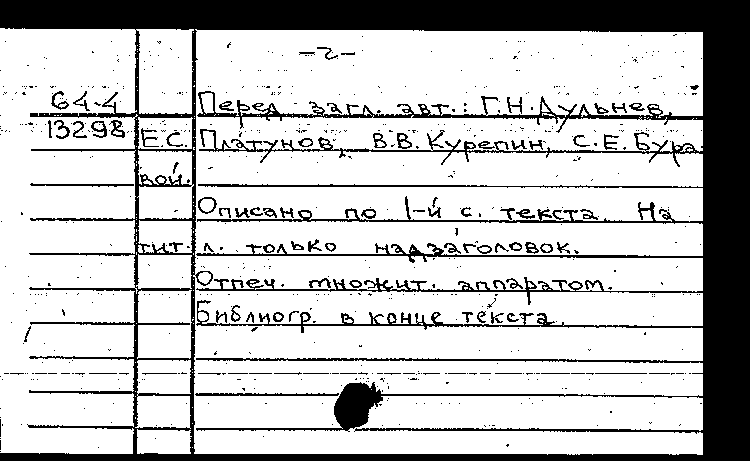 -2-
64-4 Перед загл. авт.: Г.Н.Дульнев,
13298 Е.С. Платунов, В.В.Курепин, С.Е.Бура-
вой.
Описано по 1-й с. текста. На
тит. л. только надзаголовок.
Отпеч. множит. аппаратом.
Библиогр. в конце текста.